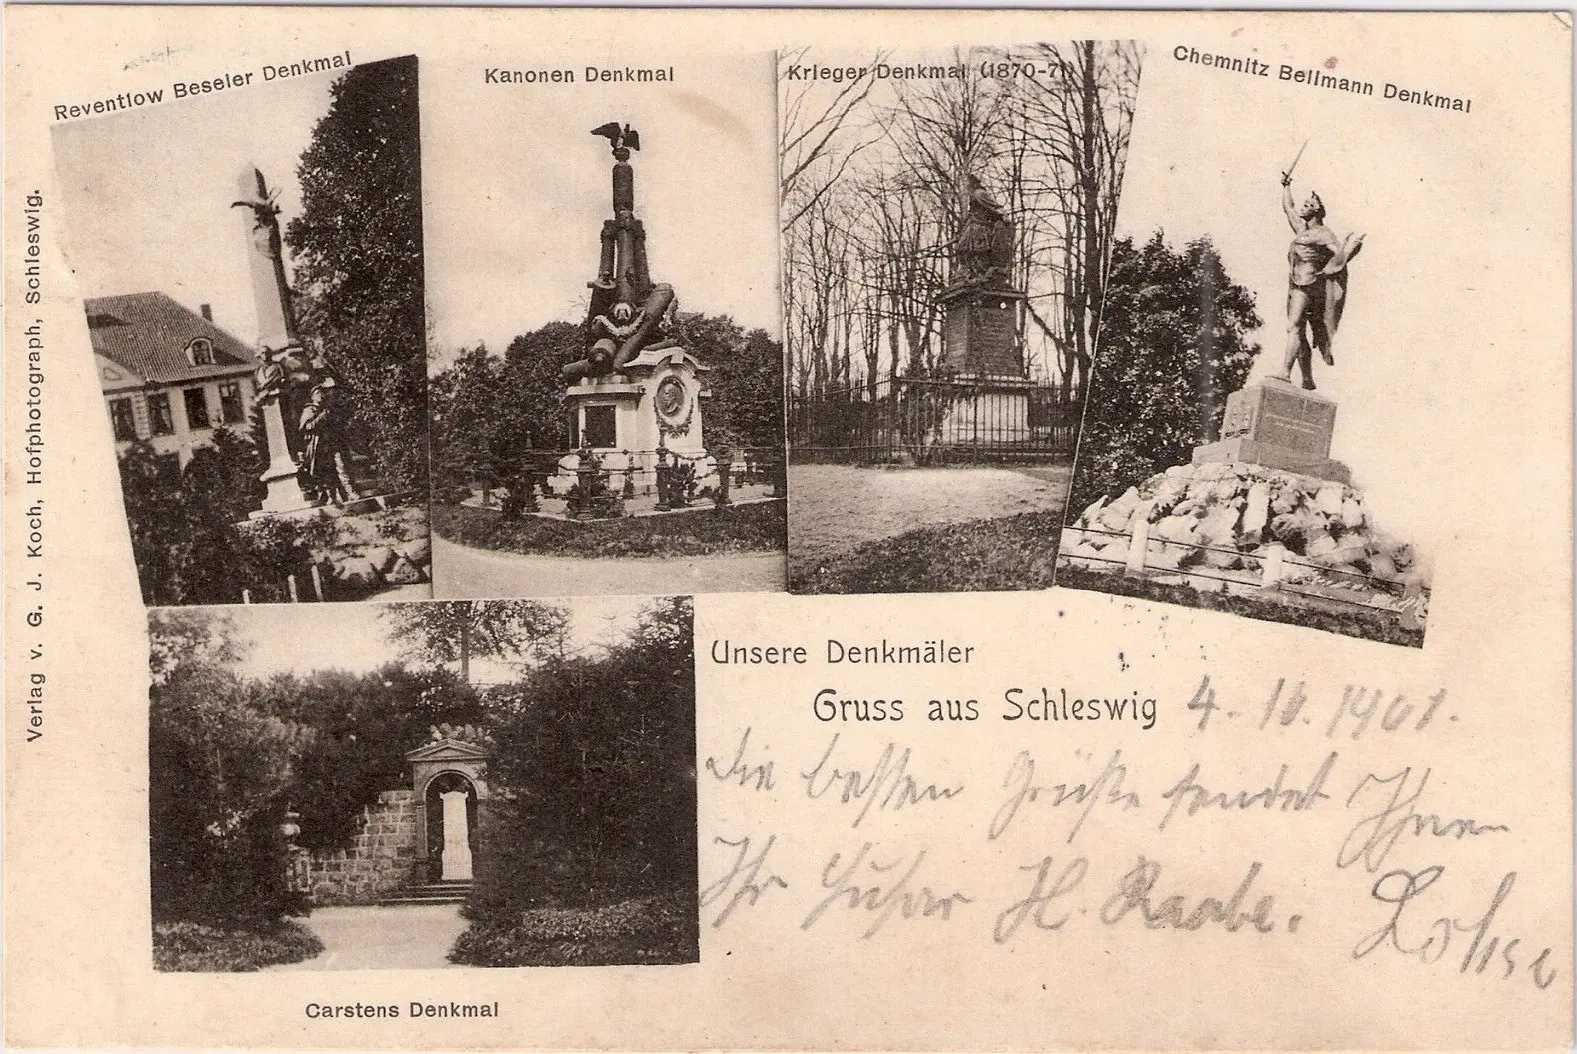 Reventlow Beseler Denkmal
Kanonen Denkmal
Krieger Denkmal (1870-71)
Chemnitz Bellmann Denkmal
Verlag v. G. J. Koch, Hofphotograph, Schleswig.
Unsere Denkmäler
Gruss aus Schleswig 4. 10. 1901.
Die besten Grüße sendet Ihnen
Ihr Husar H. Raabe.
Carstens Denkmal